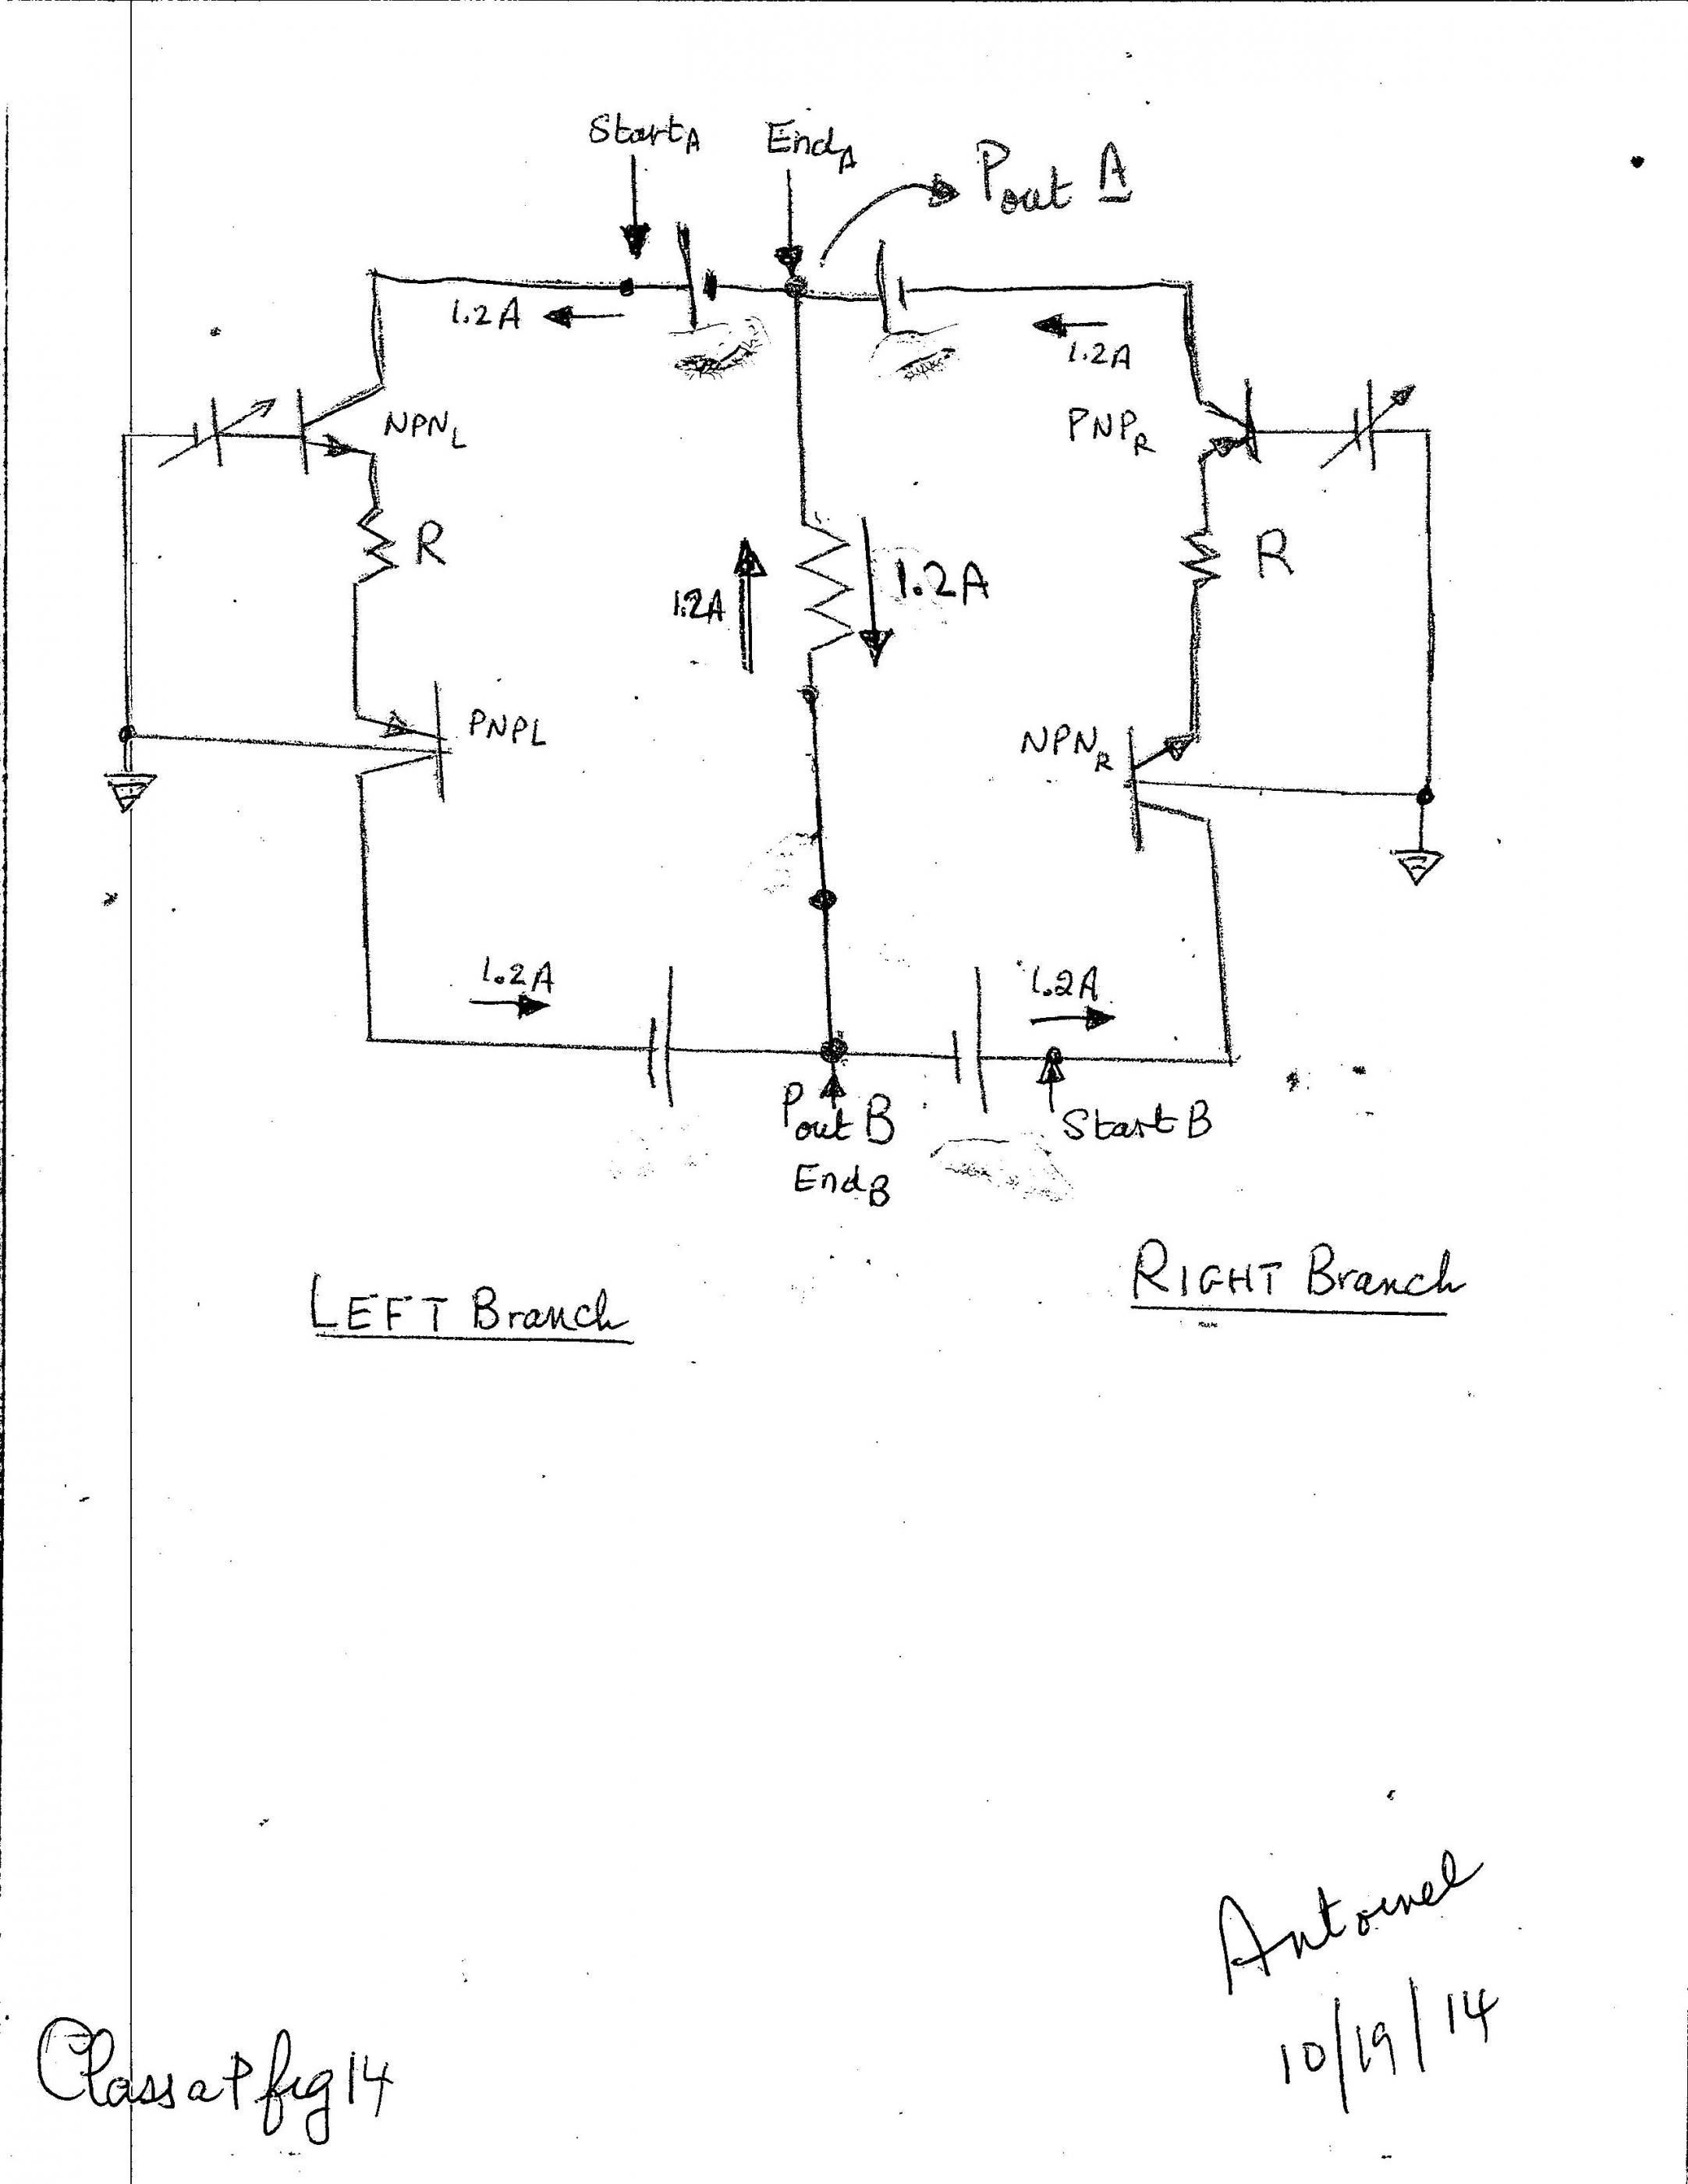 StartA EndA
Pout A
1.2A
1.2A
NPNL
PNPR
R
R
1.2A
1.2A
PNPL
NPNR
1.2A
1.2A
Pout B
Start B
EndB
LEFT Branch
RIGHT Branch
Antoinel
10/19/14
Class aP fig 14